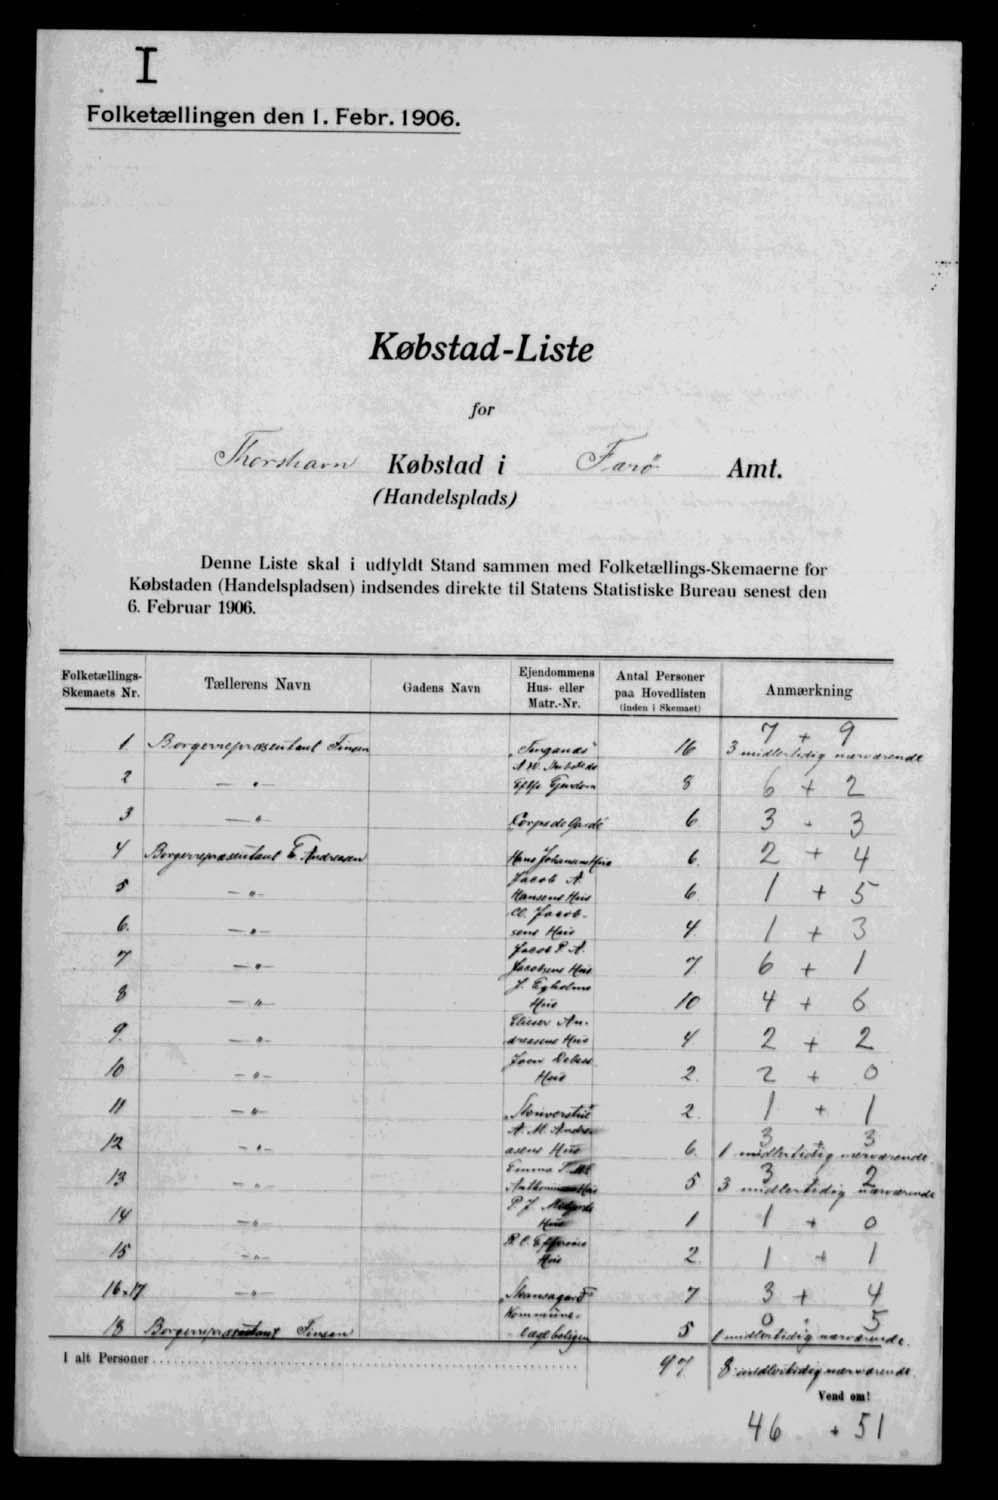 I
Folketællingen den 1. Febr. 1906.
Købstad-Liste
for
Thorshavn Købstad i Farö Amt.
(Handelsplads)
Denne Liste skal i udfyldt Stand sammen med Folketællings-Skemaerne for
Købstaden (Handelspladsen) indsendes direkte til Statens Statistiske Bureau senest den
6. Februar 1906.
Folketællings-Skemaets Nr. Tællerens Navn Gadens Navn Ejendommens Hus- eller Matr.-Nr. Antal Personer paa Hovedlisten (inden i Skemaet) Anmærkning
7 + 9
1 Borgerrepræsentant Finsen „Tinganæs" 16 3 midlertidig nærværende
2 — „ — 8 6 + 2
3 — „ — Corps de Garde 6 3 - 3
4 Borgerrepræsentant E. Andreasen Hans Johansens Hus 6. 2 + 4
5 — „ — Jacob A. Hansens Hus 6. 1 + 5
6. — „ — Cl. Jacobsens Hus 4. 1 + 3
7 — „ — Jacob P. A. Jacobsens Hus 7 6 + 1
8 — „ — J. Egholms Hus 10 4 + 6
9. — „ — Elieser Andreasens Hus 4 2 + 2
10 — „ — Joen Hus 2. 2 + 0
11 — „ — 2. 1 + 1
3 + 3
12 — „ — A. M. Andreasens Hus 6. 1 midlertidig nærværende
3 + 2
13 — „ — Emma Hus 5 3 midlertidig nærværende
14 — „ — P. J. Hus 1 1 + 0
15 — „ — Hus 2. 1 + 1
16 + 17 — „ — „Skansagard" 7 3 + 4
0 + 5
18 Borgerrepræsentant Finsen Kommunelægeboligen 5 1 midlertidig nærværende.
I alt Personer 97 8 midlertidig nærværende.
Vend om!
46 + 51